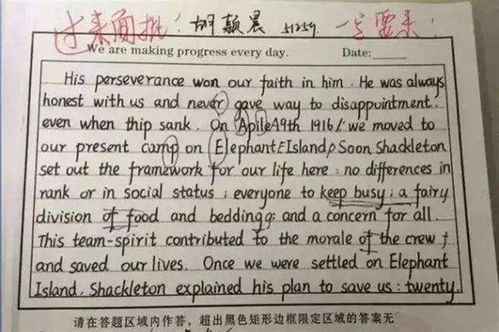 过来面批! 胡颖晨 51259 一定要来!
We are making progress every day. Date:
His perseverance won our faith in him. He was always
honest with us and never gave way to disappointment.
even when thip sank. On Apile19th 1916/ we moved to
our present camp on Elephant Island, Soon Shackleton
set out the framework for our life here: no differences in
rank or in social status; everyone to keep busy; a fairy
division of food and bedding; and a concern for all.
This team-spirit contributed to the morale of the crew
and saved our lives. Once we were settled on Elephant
Island. Shackleton explained his plan to save us: twenty.
请在答题区域内作答，超出黑色矩形边框限定区域的答案无